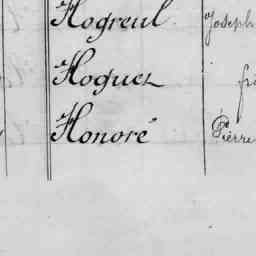 Hogreul Joseph
Hoguez
Honoré Pierre